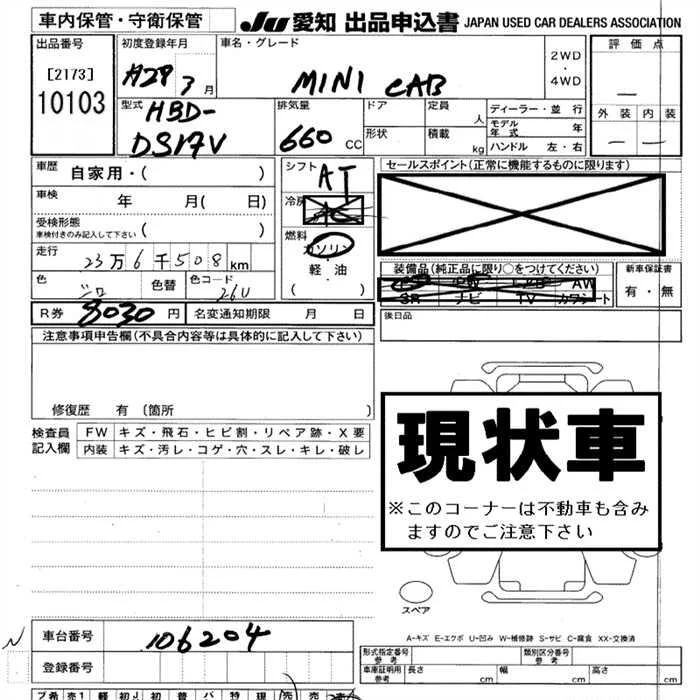 車内保管・守衛保管
JU 愛知 出品申込書 JAPAN USED CAR DEALERS ASSOCIATION
出品番号
[2173]
10103
初度登録年月
H29 3月
車名・グレード
MINI CAB
2WD
・
4WD
評価点
—
外装 内装
— —
型式
HBD-
DS17V
排気量
660 CC
ドア
形状
定員 人
積載 kg
ディーラー・並行
モデル年式 年
ハンドル 左・右
車歴 自家用・( )
車検 年 月( 日)
受検形態
車検付きのみ記入して下さい ( )
走行 23万6千508km
色 シロ 色替 色コード 26U
シフト AT
冷房 AC
燃料
ガソリン
・
軽・油
( )
セールスポイント(正常に機能するものに限ります)
装備品(純正品に限り○をつけてください)
AW
SR ナビ TV カワシート
新車保証書
有・無
R券 8030円 名変通知期限 月 日
後日品
注意事項申告欄(不具合内容等は具体的に記入して下さい)
修復歴 有〔箇所 〕
検査員
記入欄
FW キズ・飛石・ヒビ割・リペア跡・X要
内装 キズ・汚レ・コゲ・穴・スレ・キレ・破レ
現状車
※このコーナーは不動車も含み
ますのでご注意下さい
スペア
A-キズ E-エクボ U-凹み W-補修跡 S-サビ C-腐食 XX-交換済
N
車台番号 106204
登録番号
形式指定番号
参考
類別区分番号
参考
車庫証明用
参考
長さ cm 幅 cm 高さ cm